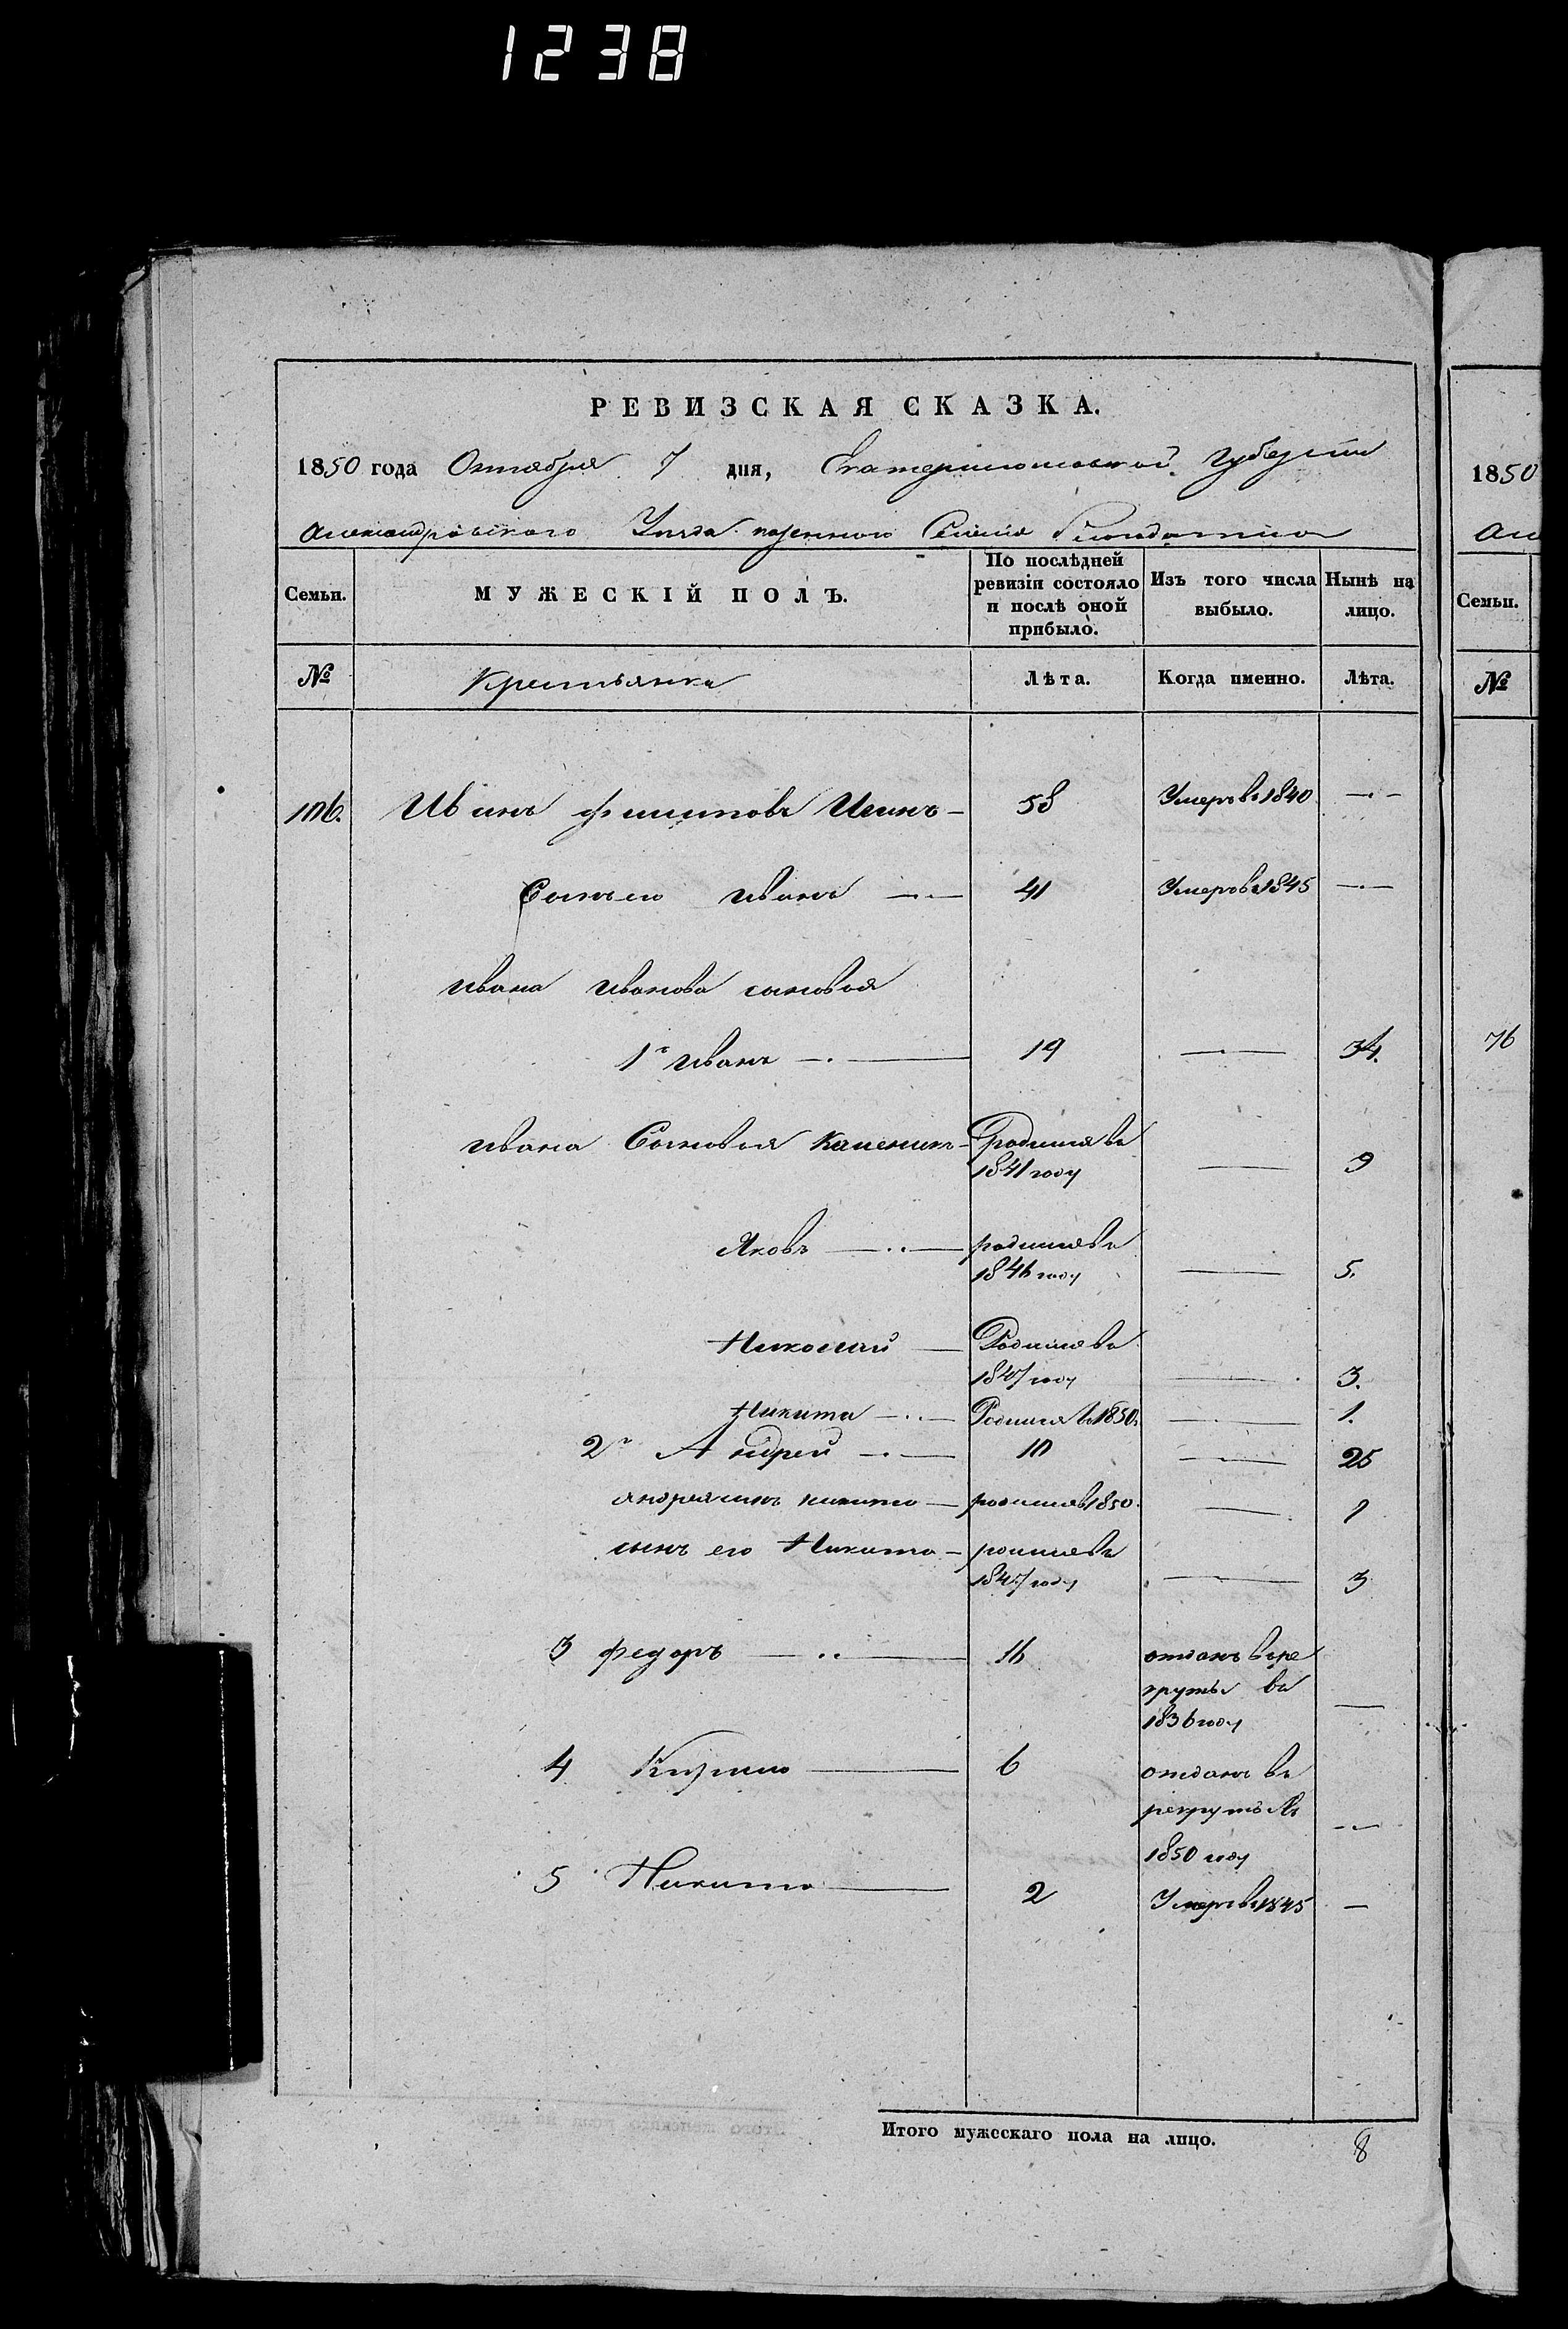 1238
РЕВИЗСКАЯ СКАЗКА.
1850 года Октября 7 дня, Екатеринославской Губернiи
Александровскаго Уезда казенного Селенiя
Семьи.
МУЖЕСКIЙ ПОЛЪ.
По послѣдней ревизіи состояло и послѣ оной прибыло.
Изъ того числа выбыло.
Нынѣ на лицо.
№ Крестьяне Лѣта. Когда именно. Лѣта.
Иванъ Филиповъ 58 Умеръ въ 1840 —
Сынъ его Иванъ — 41 Умеръ въ 1845 —
Ивана Иванова сыновья
1й Иванъ — 19 — 34.
Ивана Сыновья — Родился въ
1841 году — 9
Яковъ — родился въ
1846 году — 5.
Николай — Родился въ
1847 году — 3.
Никита — Родился въ 1850. — 1.
2й Андрей — 10 — 25
Андрея сынъ никита — родился въ 1850. — 1
сынъ его Никита — родился въ
1847 году — 3
3 Федоръ — 16 отданъ въ ре
круты въ
1836 году —
4 — 6 отданъ въ
рекруты въ
1850 году —
5 Никита — 2 Умеръ в 1845 —
Итого мужескаго пола на лицо. 8
1850
Семьи.
№
76